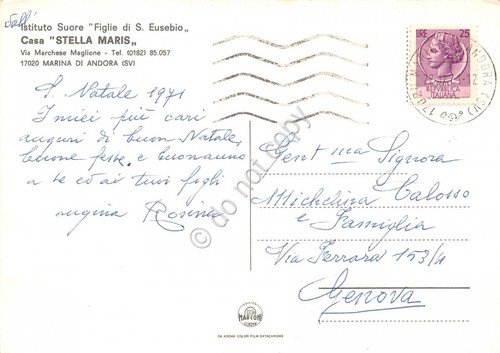 Istituto Suore "Figlie di S. Eusebio„
Casa "STELLA MARIS„
Via Marchese Maglione - Tel. (0182) 85.057
17020 MARINA DI ANDORA (SV)
S. Natale 1971
I miei più cari
auguri di buon Natale,
buone feste e buonanno
a te ed ai tuoi figli
cugina Rosina
LIRE 25
REPUBBLICA
ITALIANA
ANDORA (SV)
Gent ma Signora
Michelina Calosso
e Famiglia
Via Ferrara 153/4
Genova
do not copy
MARCONI
DA KODAK COLOR FILM EKTACHROME